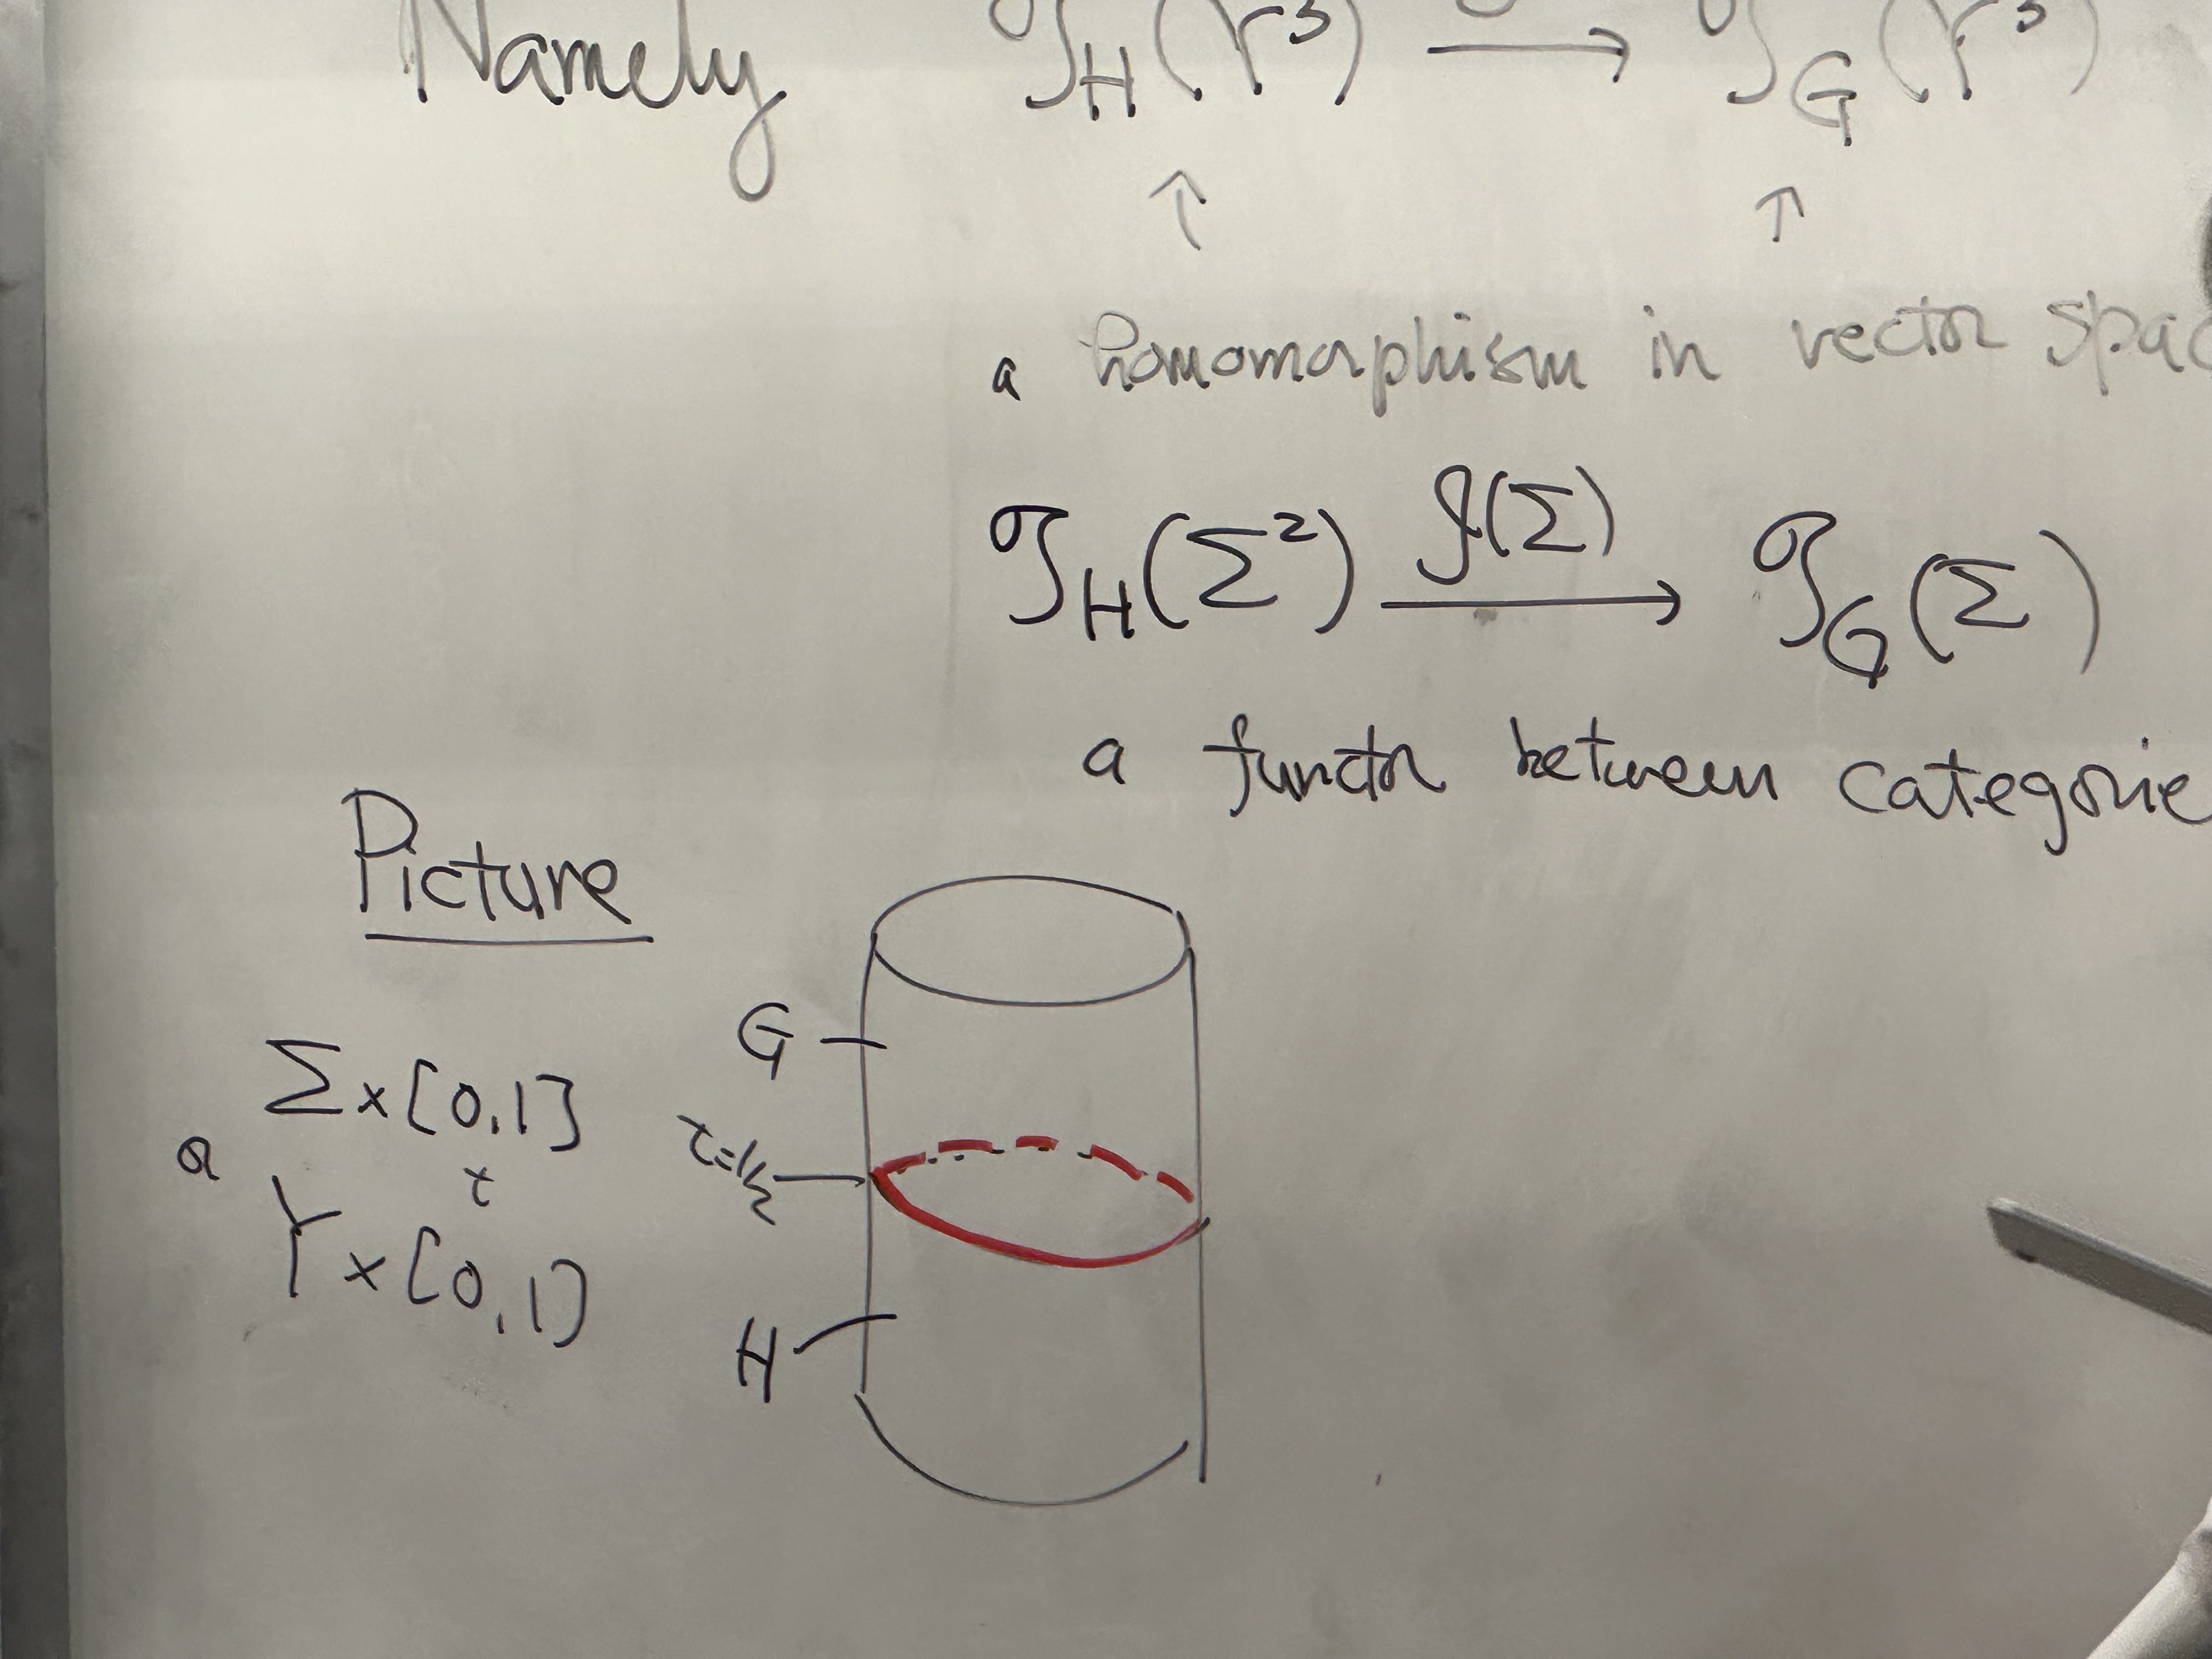 Namely 𝒯_H(Y³) ⟶ 𝒯_G(Y³)
↑ ↑
a homomorphism in vector spac
𝒯_H(Σ²) ⟶^{𝒥(Σ)} 𝒯_G(Σ)
a functor between categorie
Picture
G
Σ×[0,1]
a t τ=1/2
Y×[0,1]
H